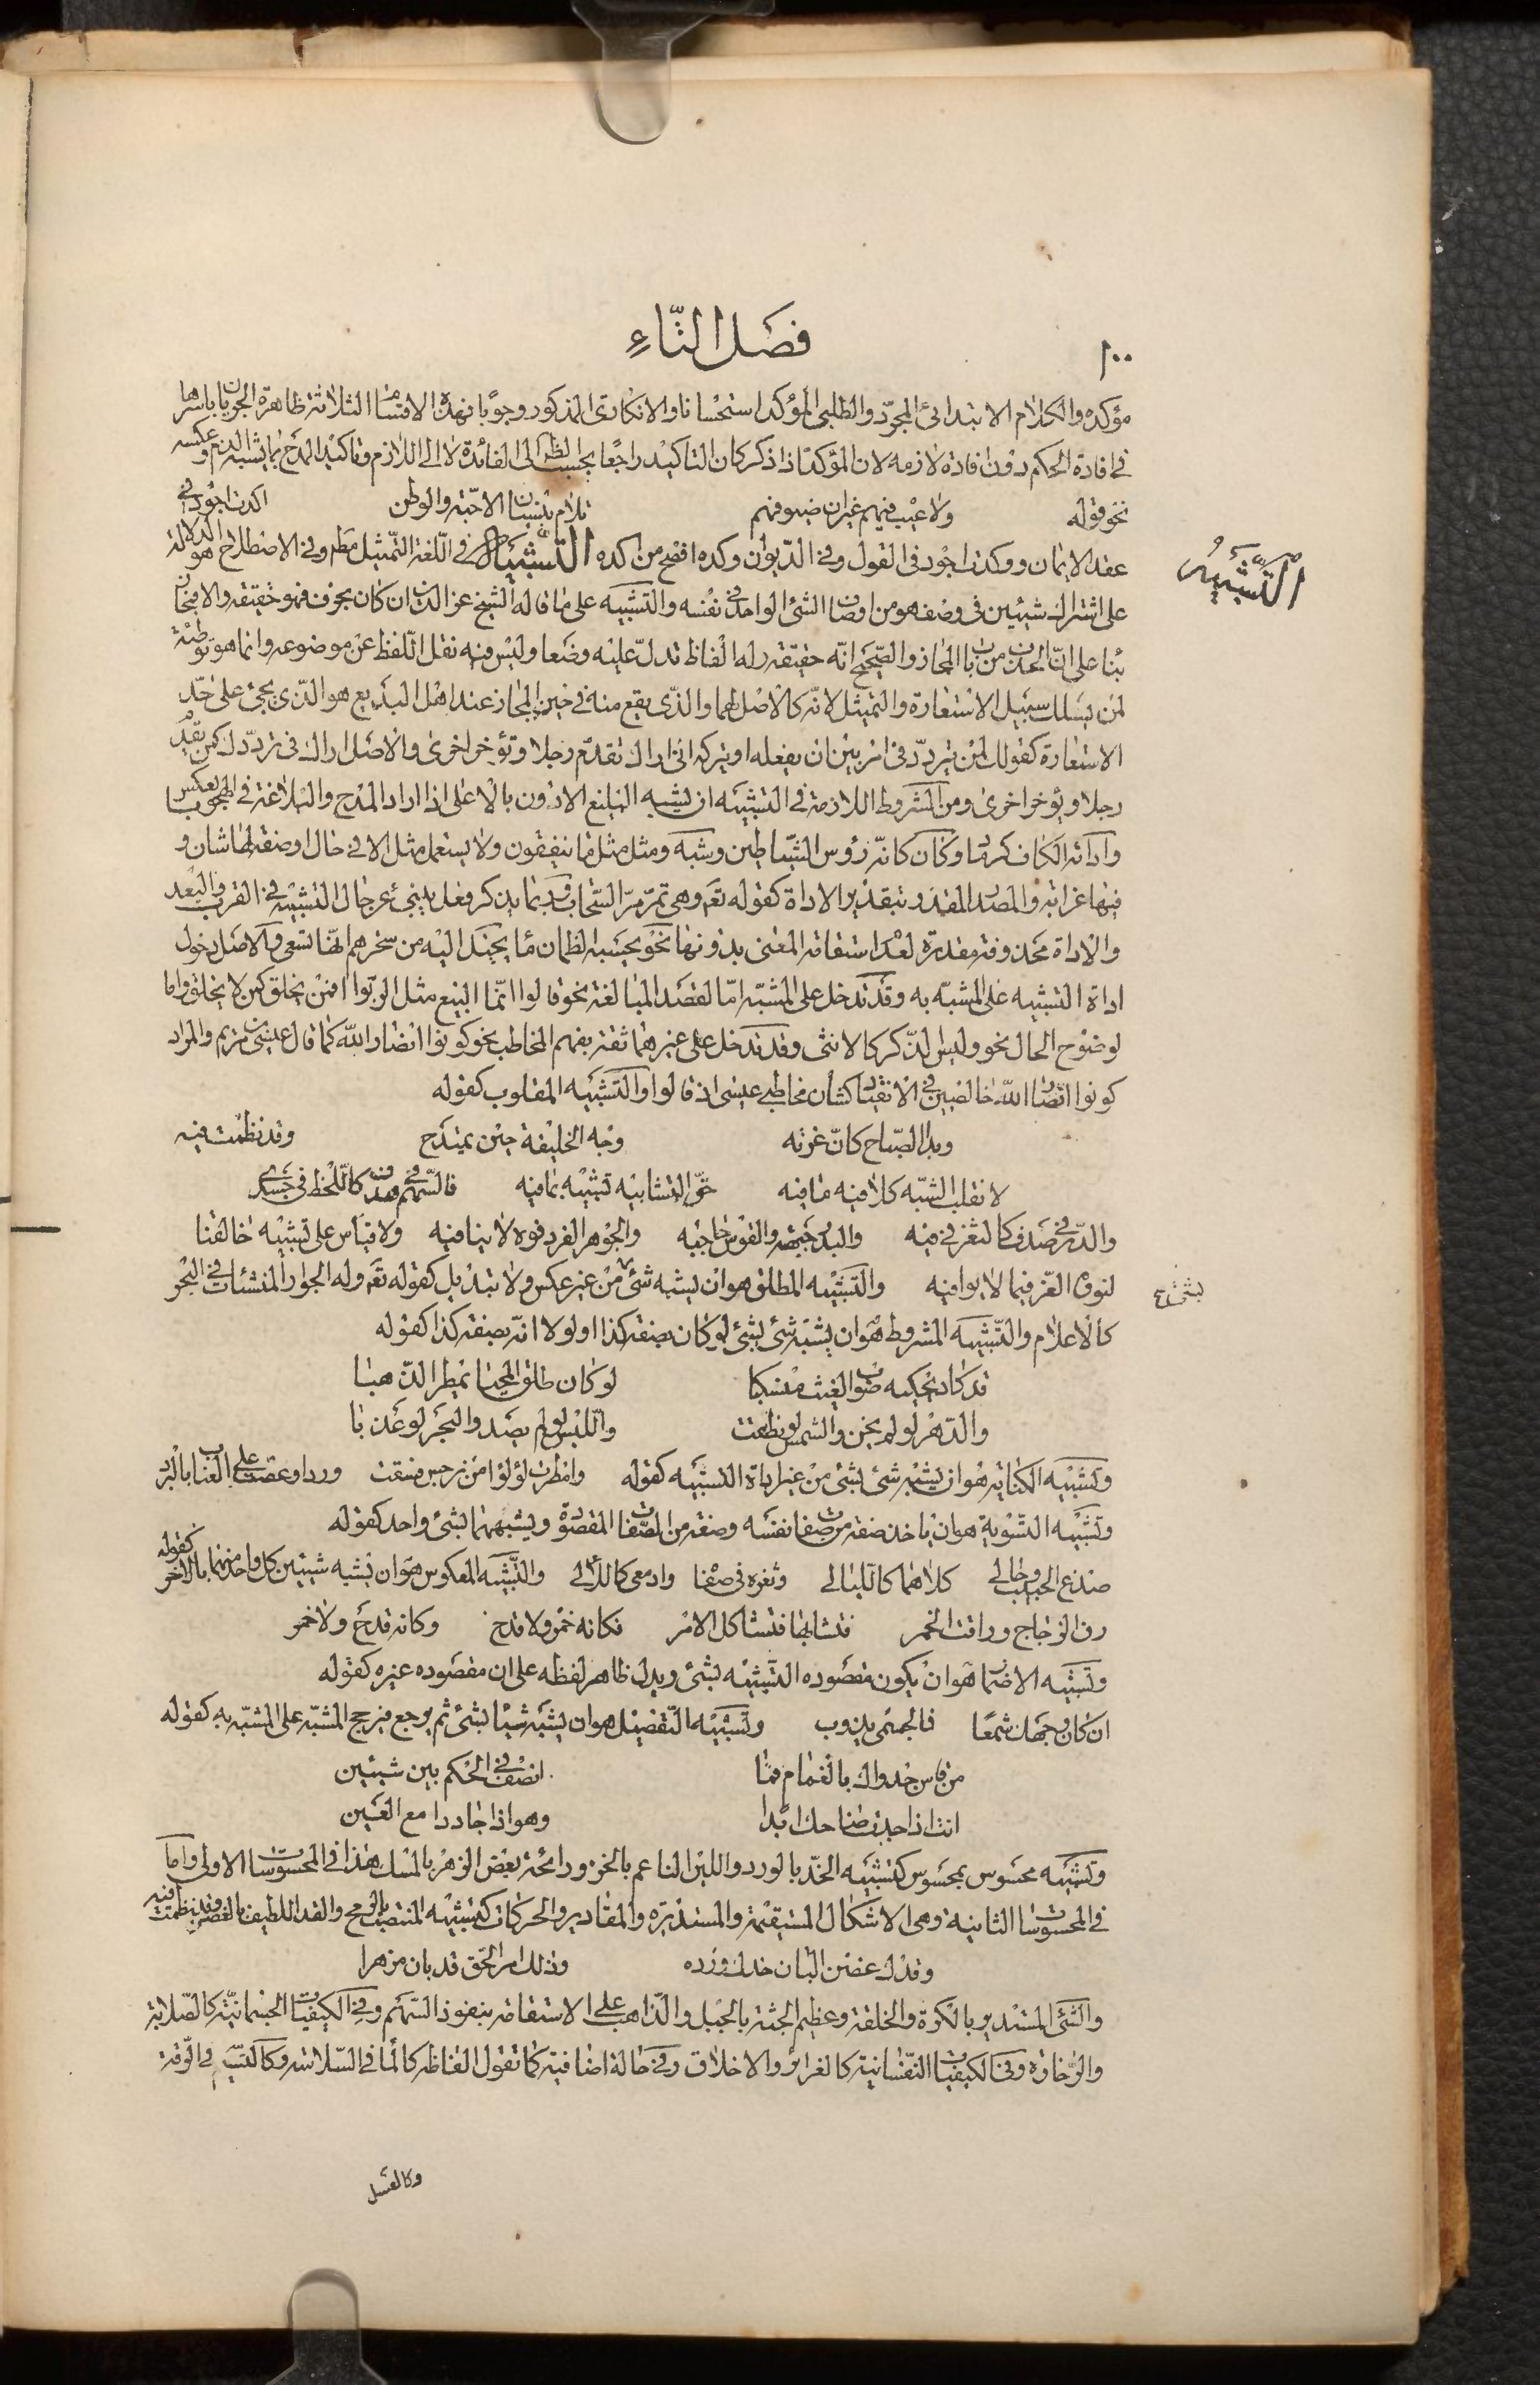 ١٠٠
فصل التاء
مؤكده والكلام الابتدائي المجرد والطلبي المؤكد استحسانا والانكاري المذكور وجوبا فهذه الاقسام الثلاثة ظاهرة الجريان باسرها
في افادة الحكم دون افادة لازمه لان المؤكد اذا ذكر كان التاكيد راجعا بحسب الظ الى الفائدة لا الى اللازم وتاكيد المدح بما يشبه الذم وعكسه
نحو قوله ولا عيب فيهم غير ان ضيوفهم تلام بنسيان الاحبة والوطن اكدت اجود في
عقد الايمان ووكدت اجود في القول وفي الديوان وكده افصح من اكده التشبيه في اللغة التمثيل مطلقا وفي الاصطلاح هو الدلالة
التشبيه
على اشتراك شيئين في وصف هو من اوصاف الشئ الواحد في نفسه والتشبيه على ما قاله الشيخ عز الدين ان كان بحرف فهو حقيقة والا فمجاز
بناء على ان الحذف من باب المجاز والصحيح انه حقيقة وله الفاظ تدل عليه وضعا وليس فيه نقل اللفظ عن موضوعه وانما هو توطئة
لمن يسلك سبيل الاستعارة والتمثيل لانه كالاصل لهما والذي يقع منه في حيز المجاز عند اهل البديع هو الذي يجئ على حد
الاستعارة كقولك لمن يتردد في امر بين ان يفعله او يتركه اني اراك تقدم رجلا وتؤخر اخرى والاصل اراك في ترددك كمن يقدم
رجلا ويؤخر اخرى ومن الشروط اللازمة في التشبيه ان يشبه البليغ الادون بالاعلى اذا اراد المدح والبلاغة في الهجو بالعكس
واداته الكاف كرماد وكأن كانه رؤوس الشياطين وشبه ومثل مثل ما ينفقون ولا يستعمل مثل الا في حال او صفة لها شان و
فيها غرابة والمصدر المقيد بتقدير الاداة كقوله تعم وهي تمر مر السحاب وربما يذكر فعل ينبئ عن حال التشبيه في القرب والبعد
والاداة محذوفة مقدرة لعدم استقامة المعنى بدونها نحو يحسبه الظمان ماء يخيل اليه من سحرهم انها تسعى والاصل دخول
اداة التشبيه على المشبه به وقد تدخل على المشبه اما لقصد المبالغة نحو قالوا انما البيع مثل الربوا افمن يخلق كمن لا يخلق واما
لوضوح الحال نحو وليس الذكر كالانثى وقد تدخل على غيرهما ثقة بفهم المخاطب نحو كونوا انصار الله كما قال عيسى بن مريم والمراد
كونوا انصار الله خالصين في الانقياد كشان مخاطبي عيسى اذ قالوا والتشبيه المقلوب كقوله
وبدا الصباح كان غرته وجه الخليفة حين يمتدح وقد نظمت فيه
لا نقلب الشبه كلا فيه ما فيه حق التشابيه تشبيه بما فيه فالسهم في هدف كاللحظ في جسدي
والدر في صدف كالثغر في فيه والبدر جبهته والقوس حاجبه والجوهر الفرد فوه لا ينافيه ولا قياس على تشبيه خالقنا
لنوره الغر فيما لا يوافيه والتشبيه المطلق هو ان يشبه شئ من غير عكس ولا تبديل كقوله تعم وله الجوار المنشئات في البحر
بشئ صح
كالاعلام والتشبيه المشروط هو ان يشبه شئ بشئ لو كان بصفة كذا او لولا انه بصفة كذا كقوله
قد كاد يحكيه صوب الغيث منسكبا لو كان طلق المحيا يمطر الذهبا
والدهر لو لم يخن والشمس لو نطقت والليث لو لم يصد والبحر لو عذبا
وتشبيه الكناية هو ان يشبه شئ بشئ من غير اداة التشبيه كقوله وامطرت لؤلؤا من نرجس فسقت وردا وعضت على العناب بالبرد
وتشبيه التسوية هو ان ياخذ صفة من صفات نفسه وصفة من الصفات المقصودة ويشبههما بشئ واحد كقوله
صدغ الحبيب وحالي كلاهما كالليالي وثغره في صفا وادمعي كاللآلي والتشبيه المعكوس هو ان يشبه شيئين كل واحد منهما بالاخر كقوله
رق الزجاج وراقت الخمر فتشابها فتشاكل الامر فكانه خمر ولا قدح وكانه قدح ولا خمر
وتشبيه الاضمار هو ان يكون مقصوده التشبيه بشئ ويدل ظاهر لفظه على ان مقصوده غيره كقوله
ان كان وجهك شمعا فالجسمي يذوب وتشبيه التفضيل هو ان يشبه شيئا بشئ ثم يرجع فيرجح المشبه على المشبه به كقوله
من قاس جدواك بالغمام فما انصف في الحكم بين شيئين
انت اذا جدت ضاحك ابدا وهو اذا جاد دامع العين
وتشبيه محسوس بمحسوس كتشبيه الخد بالورد واللين الناعم بالخز ورائحة بعض الزهر بالمسك هذا في المحسوسات الاولى واما
في المحسوسات الثانية وهي الاشكال المستقيمة والمستديرة والمقادير والحركات كتشبيه المنتصب بالرمح والقد اللطيف بالغصن وقد نظمت فيه
وقدك غصن البان خدك ورده وذلك امر الحق قد بان مزهرا
والشئ المستدير بالكرة والحلقة وعظيم الجثة بالجبل والذاهب على الاستقامة بنفوذ السهم وفي الكيفيات الجسمانية كالصلابة
والرخاوة وفي الكيفيات النفسانية كالغرائز والاخلاق وفي حالة اضافية كما تقول الفاظه كالماء في السلاسة وكالنسيم في الرقة
وكالعسل